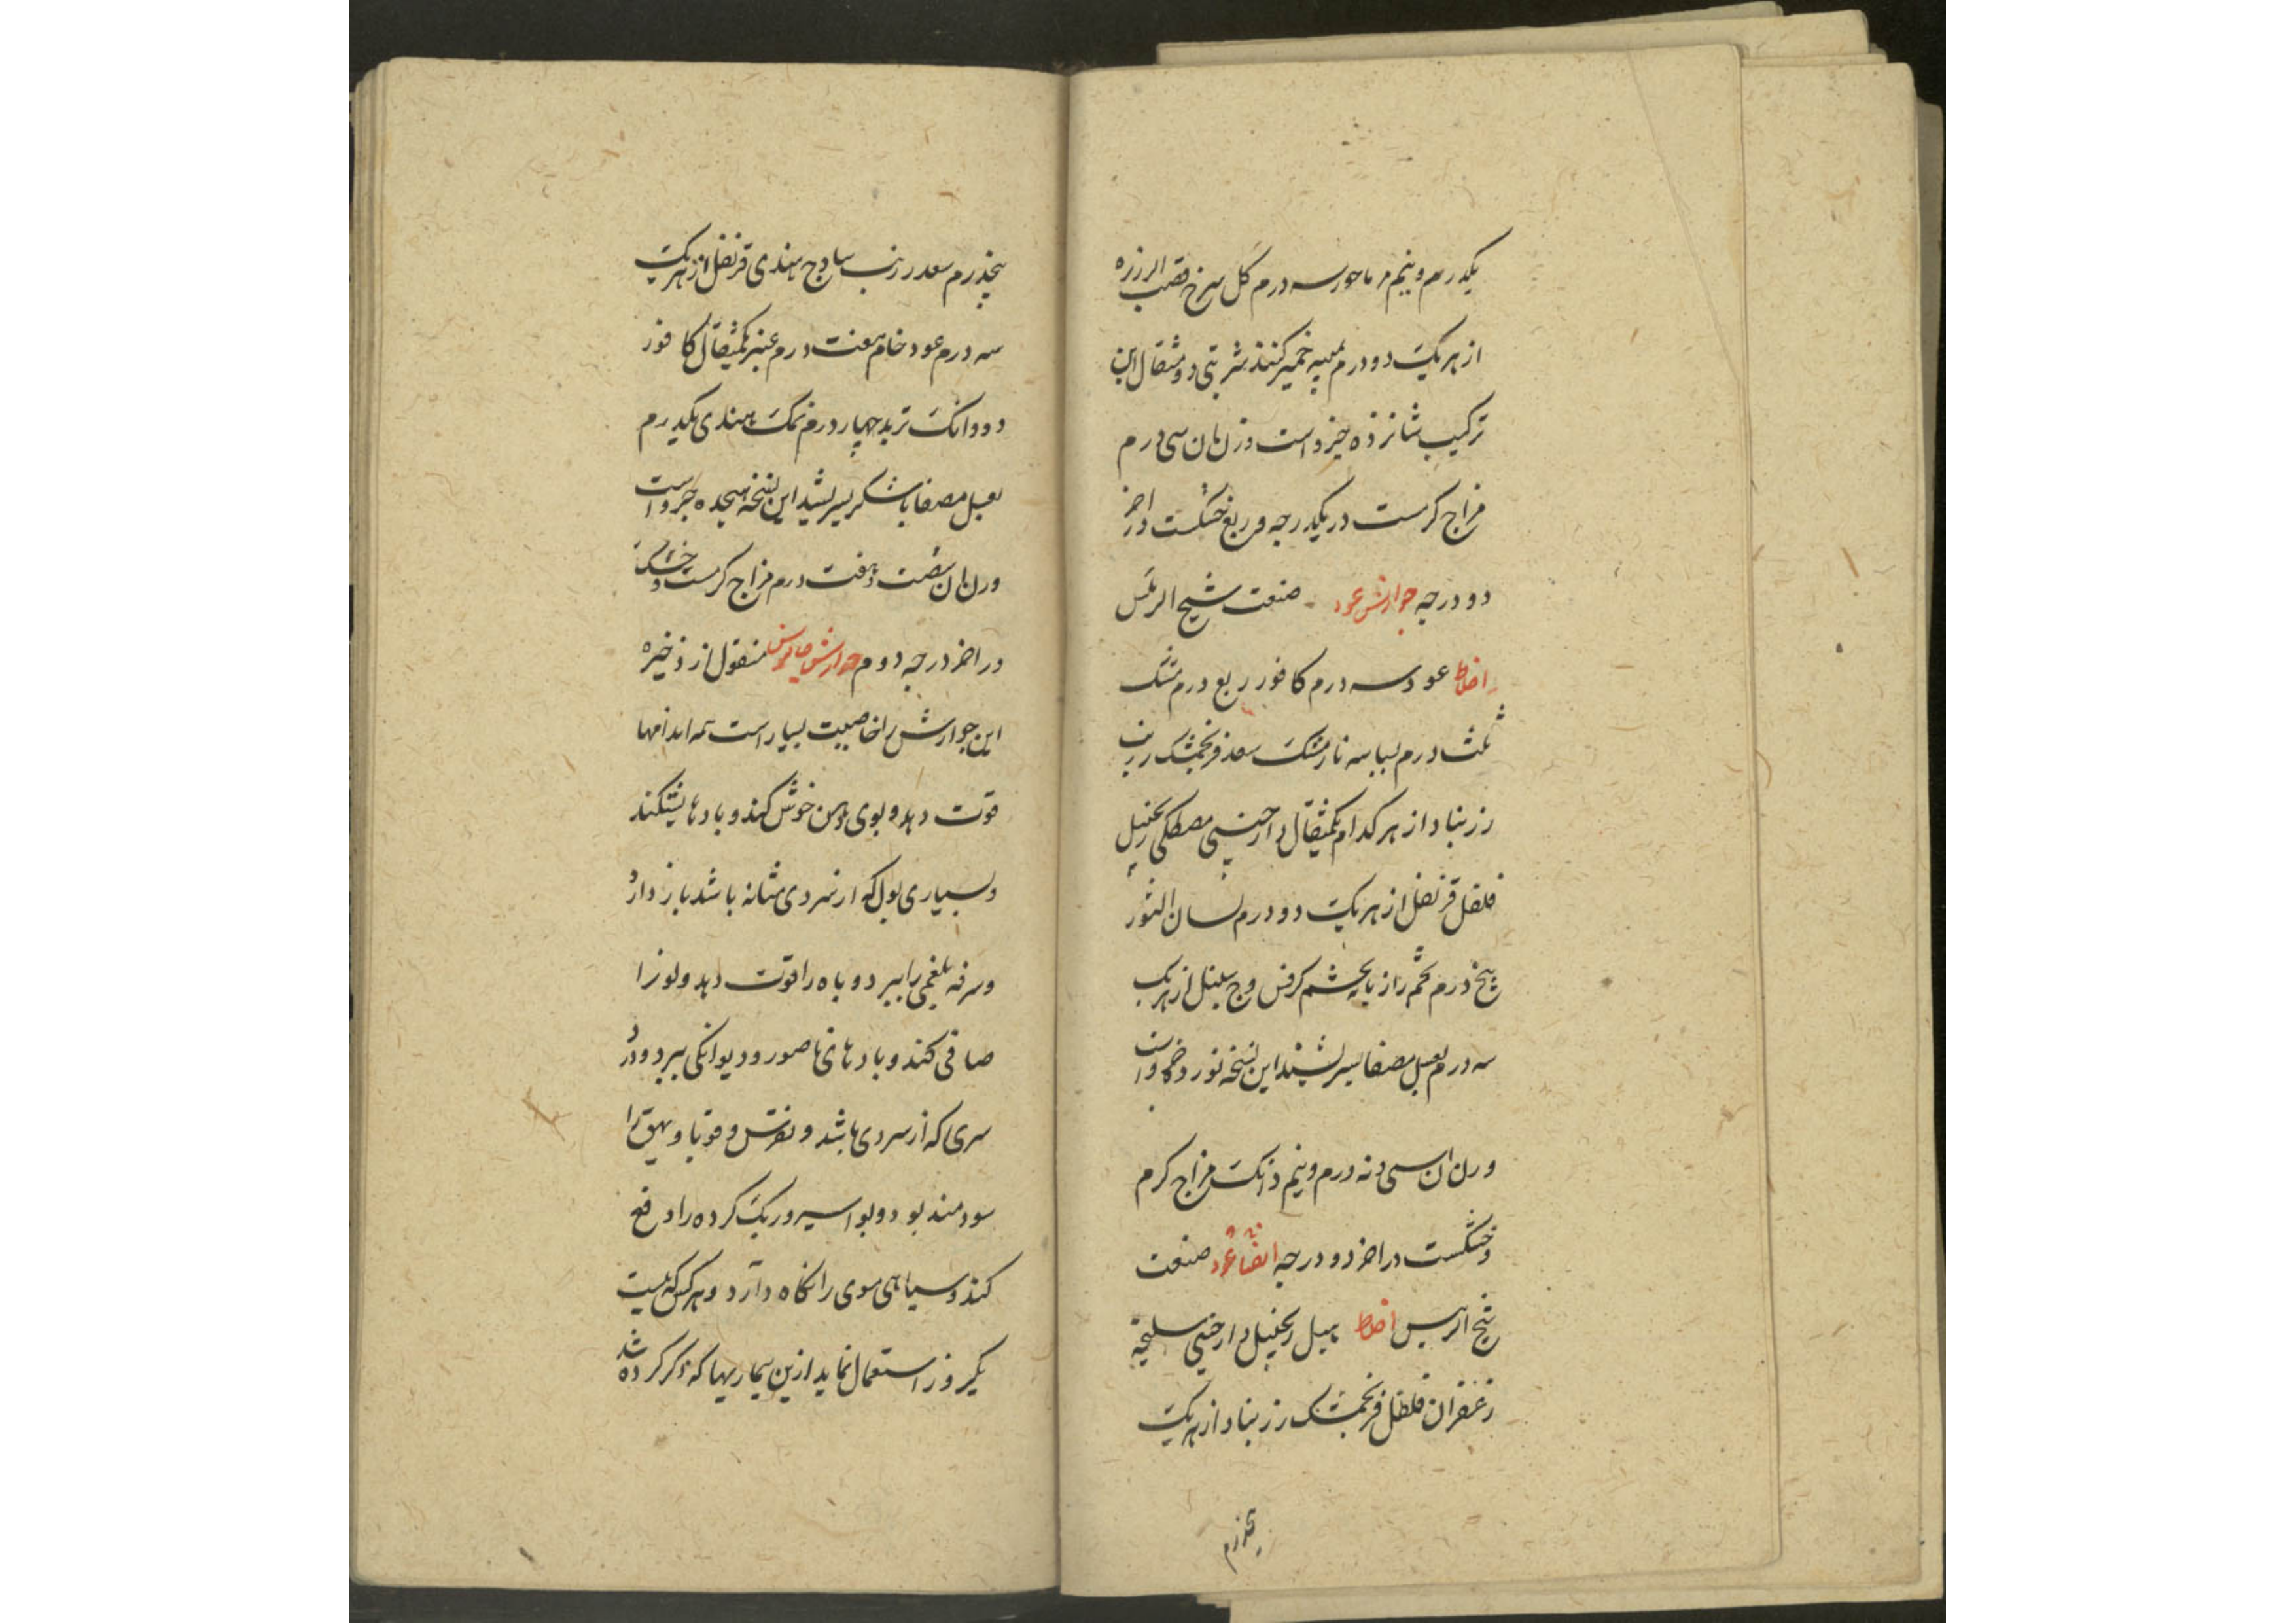 یکدرم و نیم ماحور سه درم گل سرخ قصب الزرزه
از هر یک دو درم بمیبه خمیر کنند شربتی دو مثقال این
ترکیب شانزده جزو است وزن آن سی درم
مزاج گرمست در یکدرجه و ربع خشکست در آخر
دو درجه جوارش عود صنعت شیخ الرئیس
اخلاط عود سه درم کافور ربع درم مشک
ثلث درم بسباسه نارمشک سعد فرنجمشک زرنب
زرنباد از هر کدام یکمثقال دارچینی مصطکی زنجبیل
فلفل قرنفل از هر یک دو درم لسان الثور
پنج درم تخم رازیانه تخم کرفس وج سنبل از هر یک
سه درم بعسل مصفا بسرشند این نسخه نوزده جزو است
وزن آن سی و نه درم و نیم دانک مزاج گرم
و خشکست در آخر دو درجه ایضا عود صنعت
شیخ الرئیس اخلاط هیل زنجبیل دارچینی سلیخه
زعفران فلفل فرنجمشک زرنباد از هر یک
پنجدرم
پنجدرم سعد زرنب سادج هندی قرنفل از هر یک
سه درم عود خام هفت درم عنبر یکمثقال کافور
دو دانک تربد چهار درم نمک هندی یکدرم
بعسل مصفا یا شکر بسرشند این نسخه هیجده جزو است
وزن آن شصت و هفت درم مزاج گرمست و خشک
در آخر درجه دوم جوارش جالینوس منقول از ذخیره
این جوارش را خاصیت بسیار است همه اندامها
قوت دهد و بوی دهن خوش کند و بادها بشکند
و بسیاری بول که از سردی مثانه باشد باز دارد
و سرفه بلغمی را ببرد و باه را قوت دهد و لون را
صافی کند و بادهای ناصور و دیوانکی ببرد و درد
سری که از سردی باشد و نقرس و قوبا و بهق را
سودمند بود و بواسیر و ریگ گرده را دفع
کند و سیاهی موی را نگاه دارد و هر کس که بیست
یکروز استعمال نماید ازین بیماریها که ذکر کرده شد